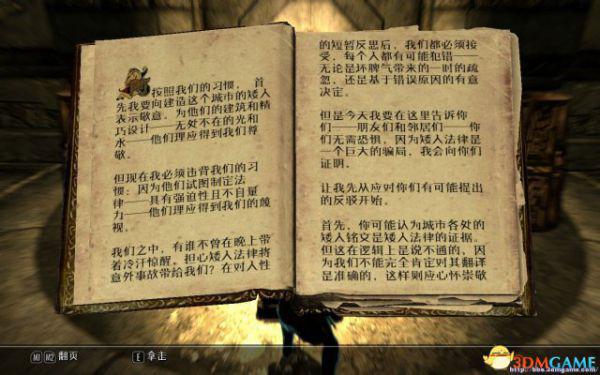 按照我们的习惯，首
先我要向建造这个城市的矮人
表示敬意。为他们的建筑和精
巧设计——无处不在的光和
水——他们理应得到我们尊
敬。
但现在我必须违背我们的习
惯：因为他们试图制定法
律——具有强迫性且不自量
力——他们理应得到我们的蔑
视。
我们之中，有谁不曾在晚上带
着冷汗惊醒，担心矮人法律将
意外事故带给我们？在对人性
的短暂反思后，我们都必须接
受，每个人都有可能犯错——
无论是坏脾气带来的一时的疏
忽，还是基于错误原因的有意
决定。
但是今天我要在这里告诉你
们——朋友们和邻居们——你
们无需恐惧，因为矮人法律是
一个巨大的骗局，我会向你们
证明。
让我先从应对你们有可能提出
的反驳开始。
首先，你可能认为城市各处的
矮人铭文是矮人法律的证据。
但这在逻辑上是说不通的，因
为我们不能完全肯定对其翻译
是准确的，这样则应心怀崇敬
M1 M2 翻页
E 拿走
3DMGAME
http://bbs.3dmgame.com